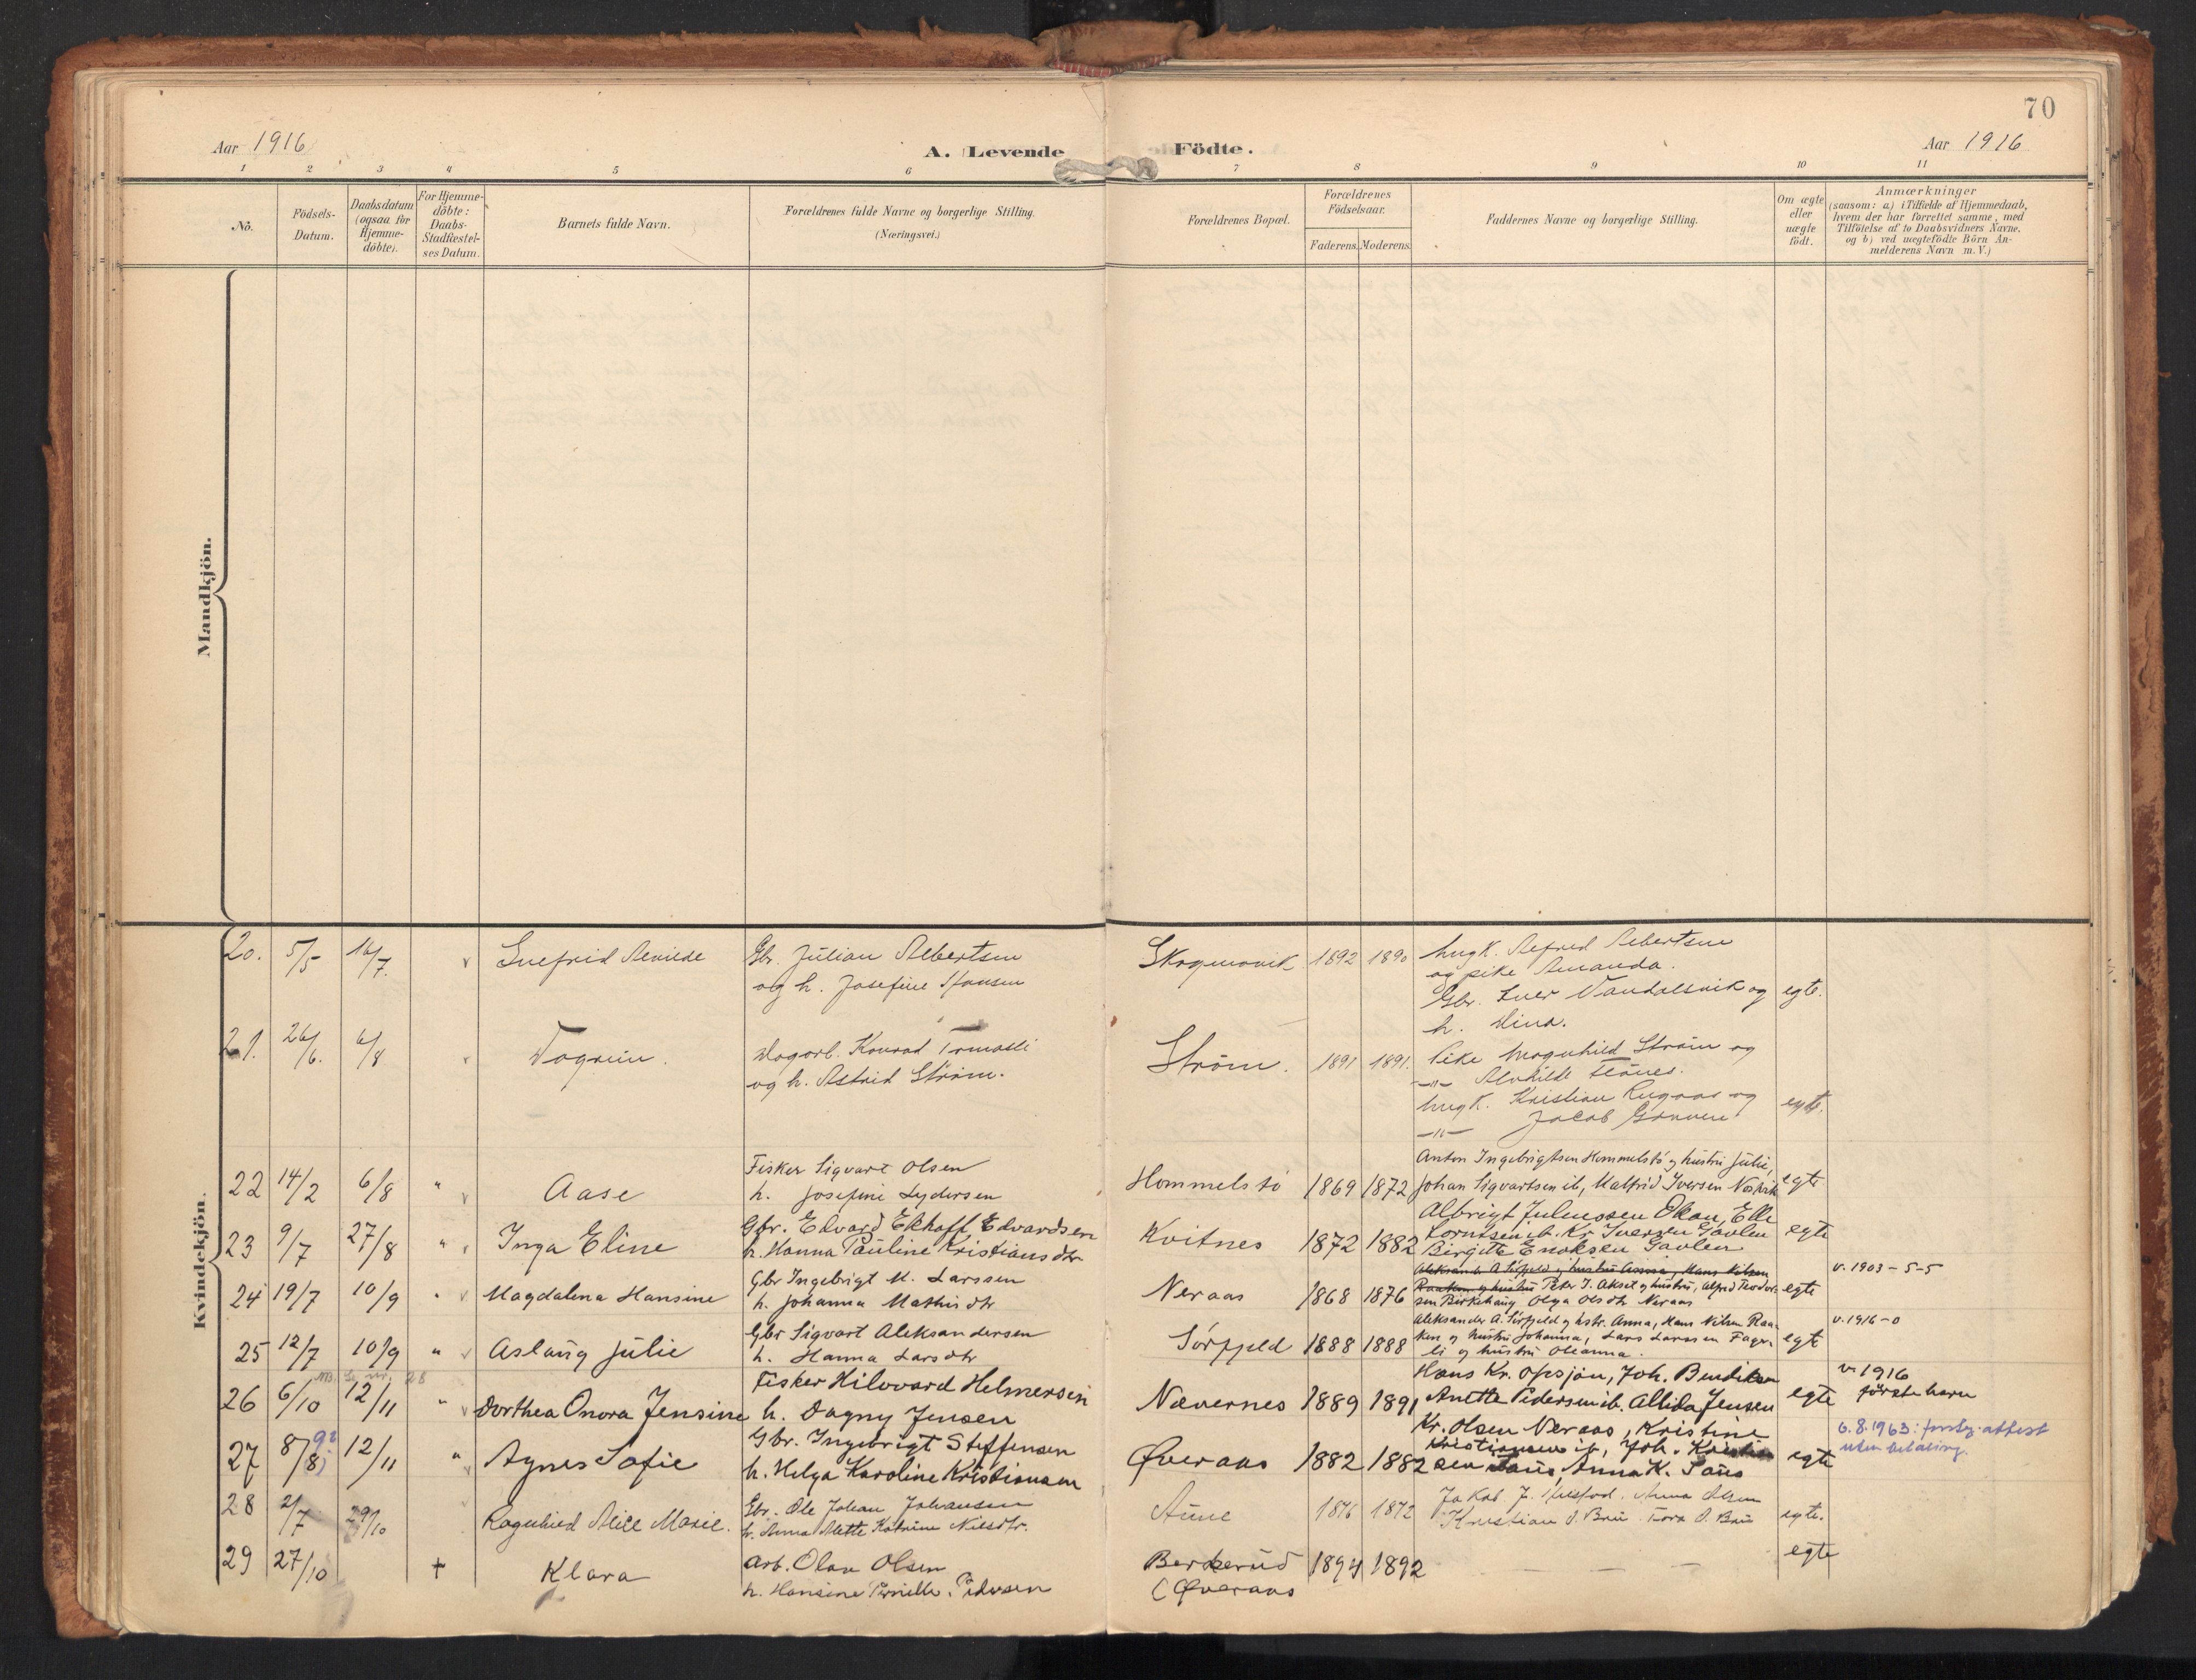 70
Aar 1916
A. Levende
Födte.
Aar 1916
1 2 3 4 5 6 7 8 9 10 11
No.
Födsels-
Datum.
Daabsdatum
(ogsaa for
Hjemme-
döbte).
For Hjemme-
döbte:
Daabs-
Stadfæstel-
ses Datum.
Barnets fulde Navn.
Forældrenes fulde Navne og borgerlige Stilling.
(Næringsvei.)
Forældrenes Bopæl.
Forældrenes
Födselsaar.
Faderens. Moderens.
Faddernes Navne og borgerlige Stilling.
Om ægte
eller
uægte
født.
Anmærkninger
(saasom: a.) i Tilfælde af Hjemmedaab,
hvem der har forrettet samme, med
Tilföielse af to Daabsvidners Navne,
og b) ved uægtefödte Börn An-
melderens Navn m. V.)
Mandkjön.
Kvindekjön.
20. 5/5 16/7. Gbr. Julian Albertsen
og h. Josefine Hansen
1892 1890 ungk. Alfred Albertsen
og pike Amanda.
Gbr. Iver Vandalsvik og egte.
h. Dina.
21. 26/6. 6/8 Dagrun. Dagarb. Konrad
og h. Astrid Ström.
Ström. 1891 1891. Pike Ström og
-"- Alvhilde
ungk. Kristian og egte.
-"- Jacob
22 14/2 6/8 " Aase Fisker Sigvart Olsen
h. Josefine Lydersen
Hommelstö 1869 1872 Anton Ingebrigtsen Hommelstö og hustru Julie,
Johan Sigvartsen ib, Malfrid Iversen egte
23 9/7 27/8 " Inga Eline Gbr. Edvard Ekhoff Edvardsen
h. Hanna Pauline Kristiansdtr
Kvitnes 1872 1882 Albrigt Julnessen Okan, Elle
Lorntsen ib. Kr. Iversen Gavlen egte
Birgitte Enoksen Gavlen
24 19/7 10/9 " Magdalena Hansine Gbr Ingebrigt M. Larssen
h. Johanna Mathisdtr
Neraas 1868 1876 Aleksander A. Sörfjeld og hustru Anna, Hans Nilsen
Raaken og hustru Peter J. Akset og hustru, Alfred Teodor- egte
sen Birkehaug Olga Olsdtr Neraas
v. 1903 - 5-5
25 12/7 10/9 " Aslaug Julie Gbr Sigvart Aleksandersen
h. Hanna Larsdtr
Sörfjeld 1888 1888 Aleksander A. Sörfjeld og hstr. Anna, Hans Nilsen Raa-
ken og hustru Johanna, Lars Larssen Fager- egte
li og hustru Oleanna.
v. 1916 - 0
NB. Se nr. 28
26 6/10 12/11 " Dorthea Onora Jensine Fisker Hilvard Helmersen
h. Dagny Jensen
Nævernes 1889 1891 Hans Kr. Opsjön, Joh. Bendiksen
Anette Pedersen ib. Allida Jensen egte
v. 1916
förste barn
27 8/8 12/11 " Agnes Sofie Gbr. Ingebrigt Steffensen
h. Helga Karoline Kristiansen
Øveraas 1882 1882 Kr. Olsen Neraas, Kristine
Kristiansen ib, Joh. Kristian
sen Anna K. egte
6.8.1963: attest
uten betaling.
28 2/7 29/10 Ragnhild Alice Marie. Gbr. Ole Johan Johansen
h. Anna Mette Katrine Nilsdtr.
Aune 1876 1872 Jakob J. Anna Olsen
Kristian O. Bru Tora O. Bru egte.
29 27/10 + Klara Arb. Olav Olsen
h. Hansine Pernille Pedersen
Berkerud 1894 1892 — — egte
(Øveraas